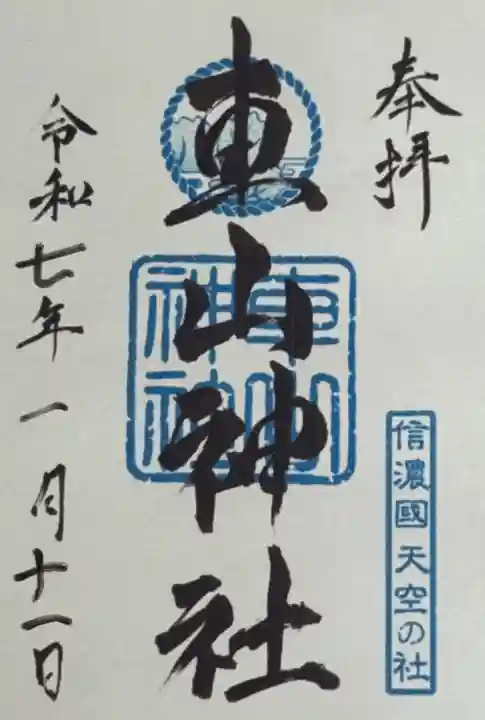 奉拝
信濃國 天空の社
東山神社
東山
神社
令和七年一月十一日